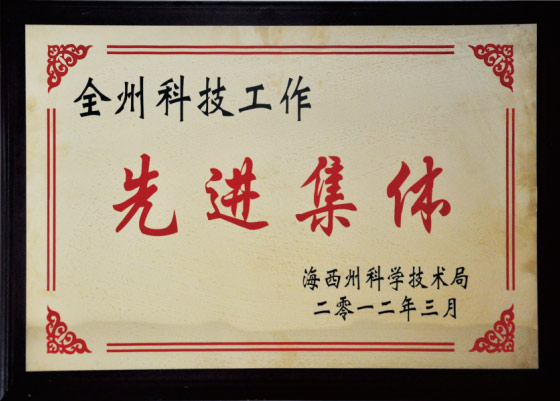 全州科技工作
先进集体
海西州科学技术局
二零一二年三月